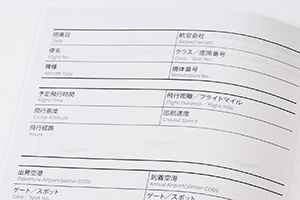 搭乗日 航空会社
Date Airline(Carrier)
便名 クラス／座席番号
Flight No. Class / Seat No.
機種 機体番号
Aircraft Type Registration No.
予定飛行時間 飛行距離／フライトマイル
Flight Time Flight Distance / Flight Mile
飛行高度 巡航速度
Cruise Altitude Ground Speed
飛行経路
Route
出発空港 到着空港
Departure Airport/3letter CODE Arrival Airport/3letter CODE
ゲート／スポット ゲート／スポット
Gate / Spot No.